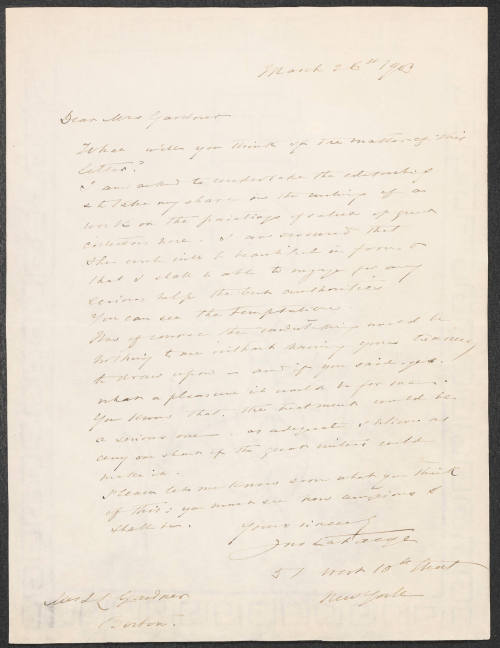 March 26th 1903
Dear Mrs Gardner
What will you think of the matter of this
letter?
I am asked to undertake the editorship
& take my share in the writing of a
work on the paintings of value of great
collectors here. I am assured that
the work will be beautiful in form &
that I shall be able to engage for any
serious help the best authorities.
You can see the temptation.
Now of course the undertaking would be
nothing to me without having your treasures
to draw upon — and if you said yes.
what a pleasure it would be for me.
You know that the treatment would be
a serious one — as adequate I believe as
any one short of the great writers could
make it.
Please let me know soon what you think
of this: you must see how anxious I
shall be.
Yours sincerely
Jno La Farge
51 West 10th Street
New York
Mrs J L Gardner
Boston.